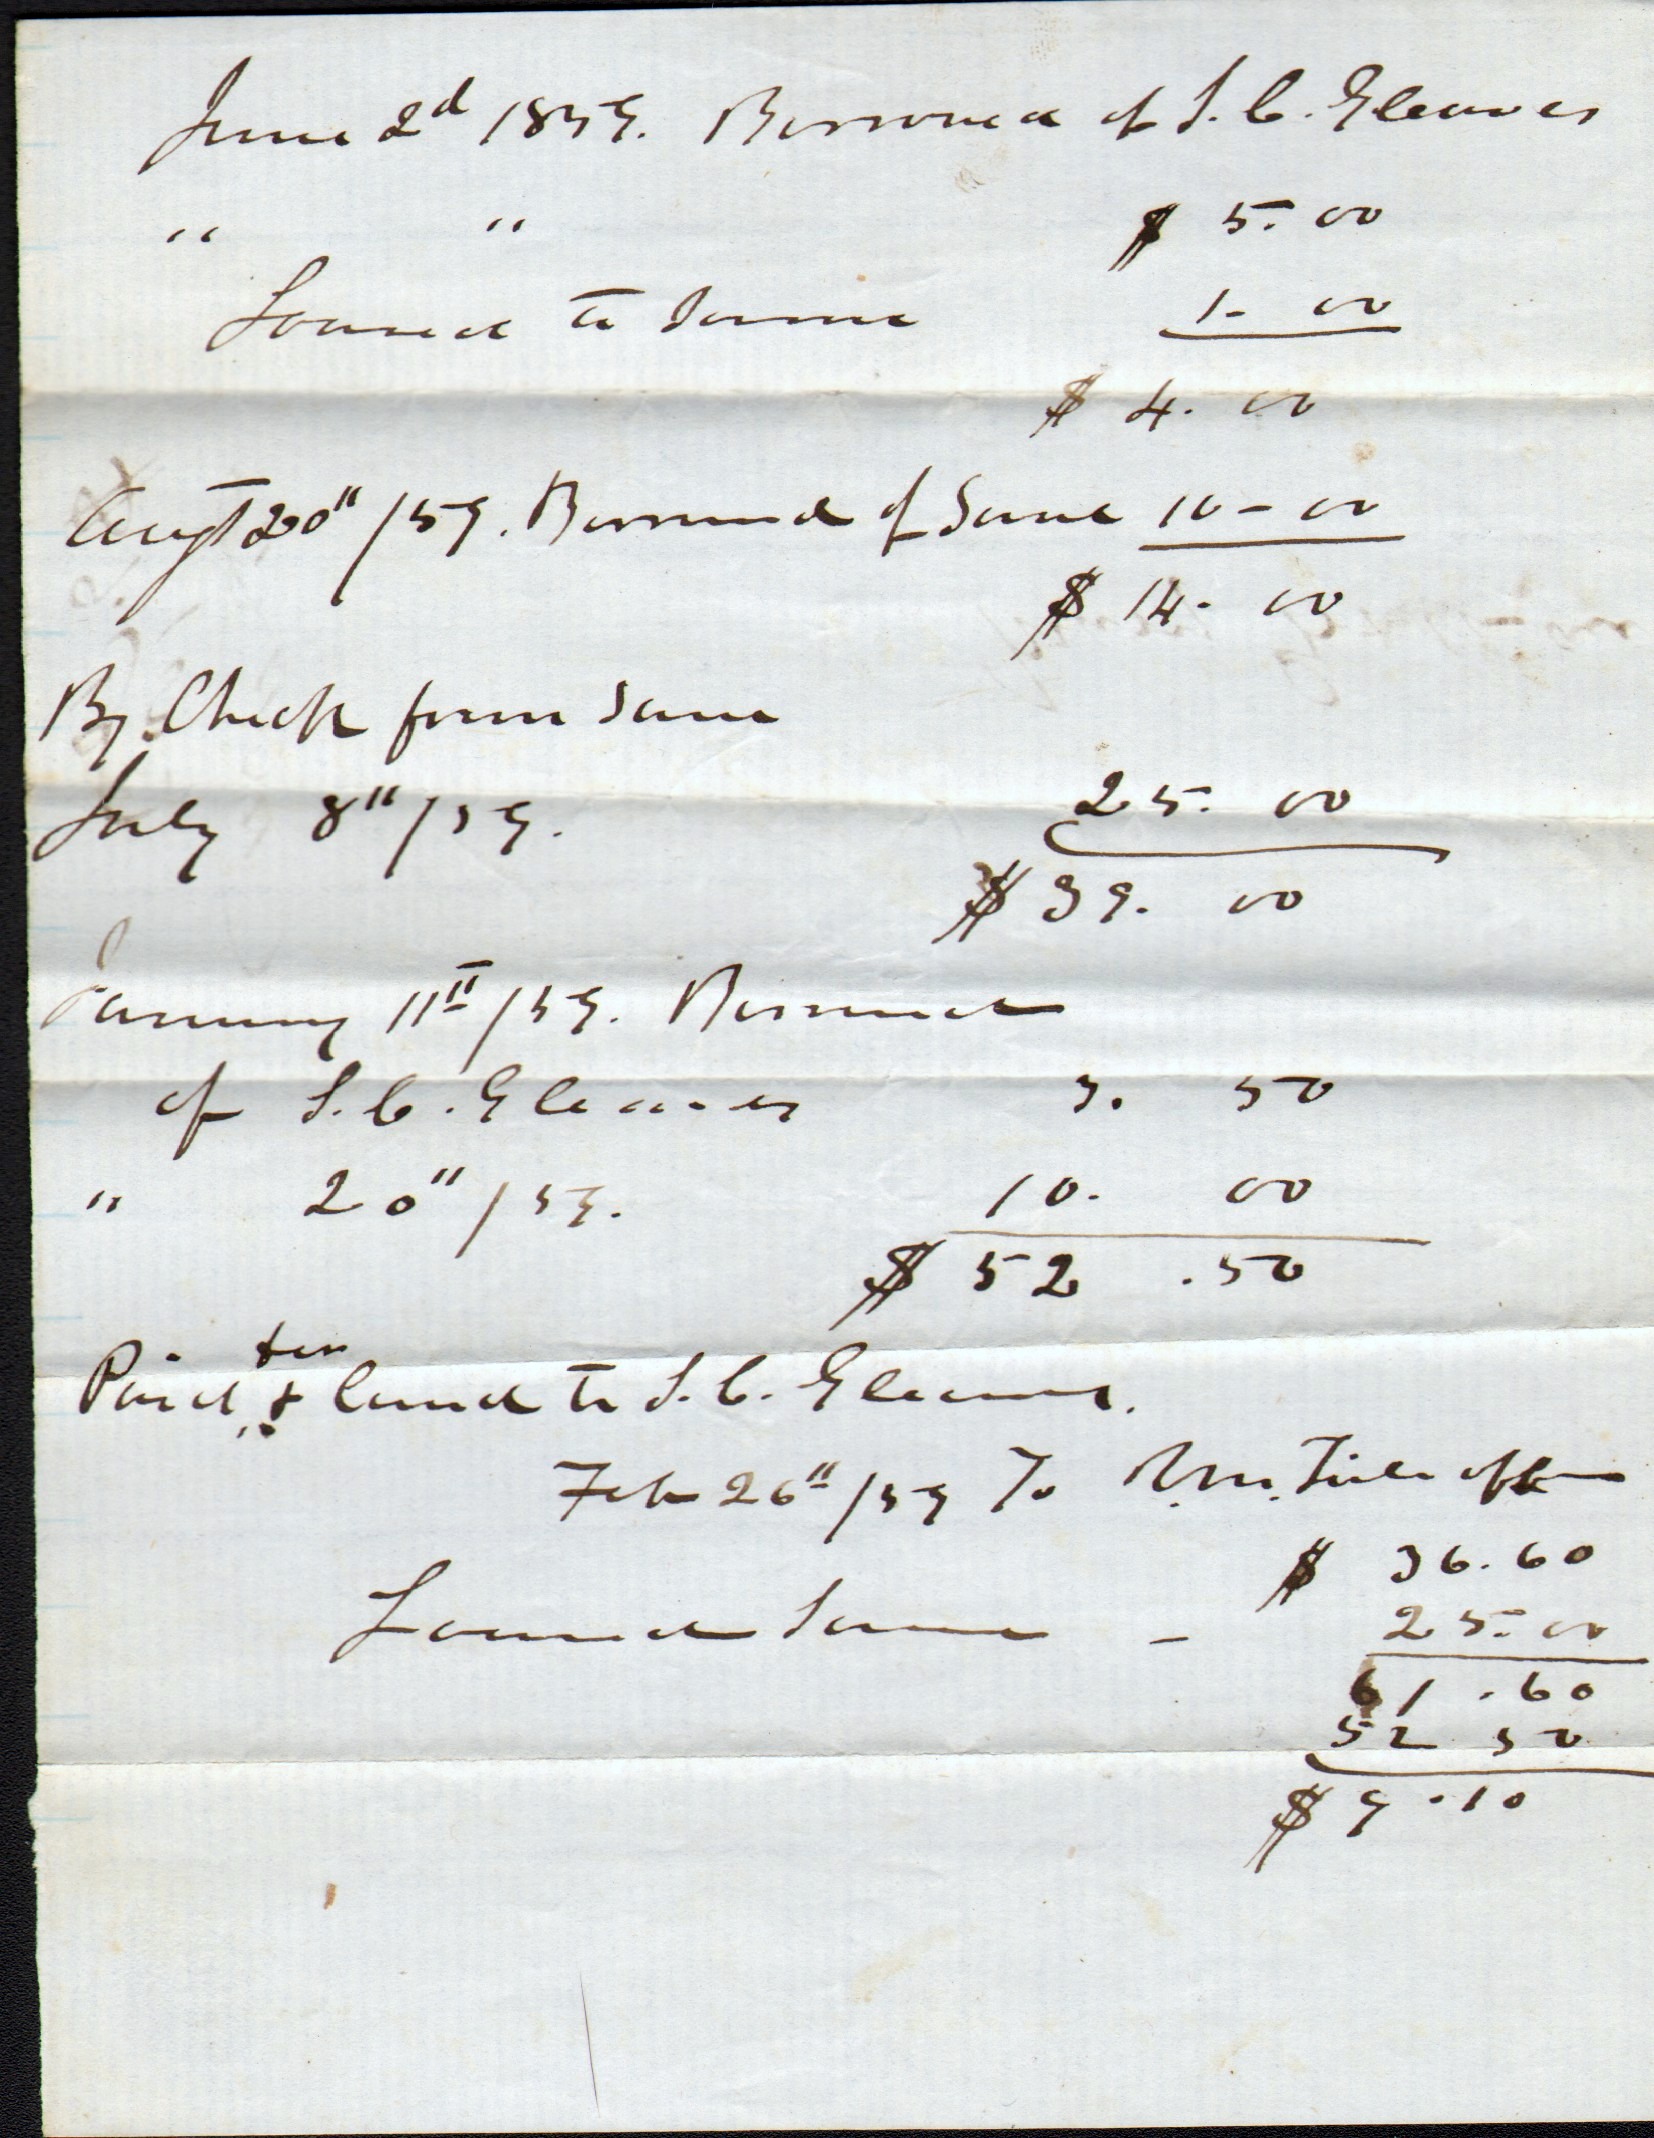 June 2d 1859. Borrowed of S. C. Gleaves
" " $ 5. 00
Loaned to Same 1- 00
$ 4. 00
Augt 20" /59. Borrowed of Same 10-00
$ 14. 00
By Check from Same
July 8" /59. 25. 00
$ 39. 00
January 11" /59. Borrowed
of S. C. Gleaves 3. 50
" 20" /59. 10. 00
$ 52 .50
ten
Paid & loaned to S. C. Gleaves.
Feb 26" /59 To
$ 36.60
Loaned Same - 25.00
61 .60
52 50
$ 9 .10